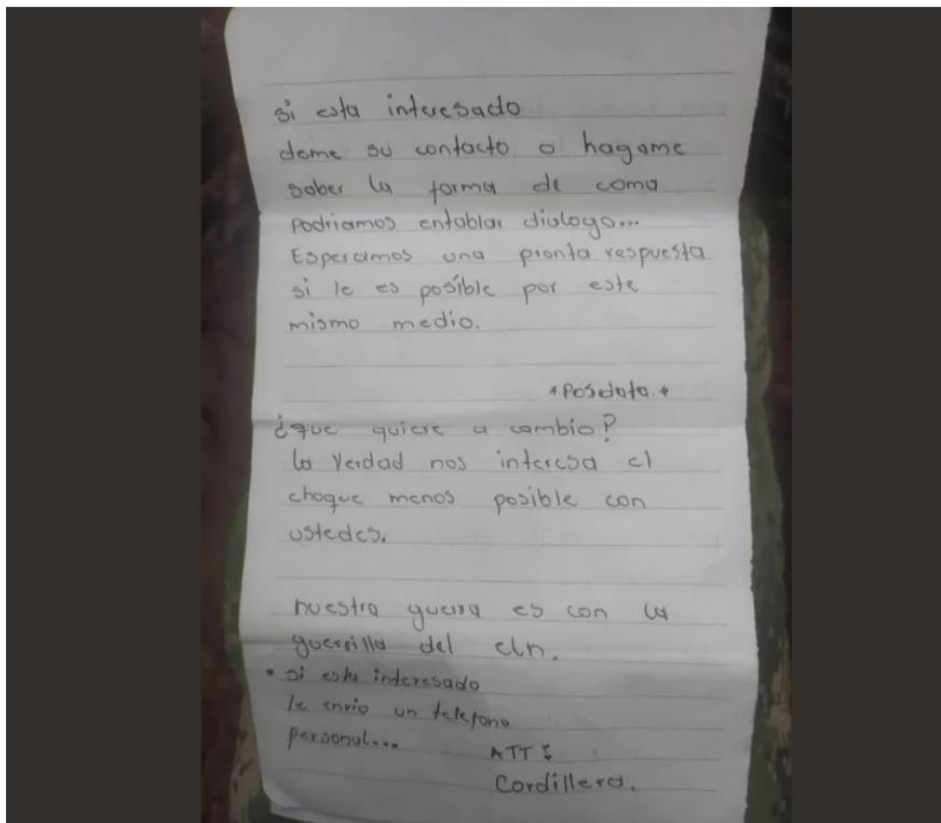 si esta interesado
deme su contacto o hagame
saber la forma de como
podriamos entablar dialogo...
Esperamos una pronta respuesta
si le es posible por este
mismo medio.
*Posdata.*
¿que quiere a cambio?
la Verdad nos interesa el
choque menos posible con
ustedes.
nuestra guerra es con la
guerrilla del eln.
• si esta interesado
le envio un telefono
personal...
ATT:
Cordillera.